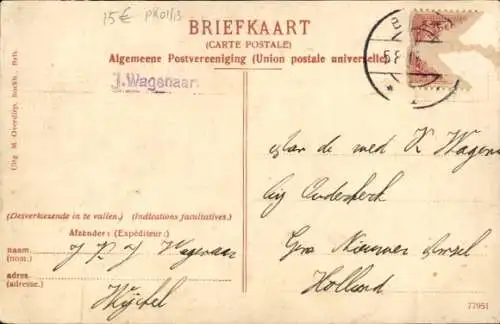 15€ PK01/13
BRIEFKAART
(CARTE POSTALE)
Algemeene Postvereeniging (Union postale universelle)
J. Wagenaar
Uitg. M. Overdiep, boekh.,
Aan de med K Wagen
bij Ouderkerk
Gem Nieuwer Amsel
Holland
(Desverkiezende in te vullen.) (Indications facultatives.)
Afzender: (Expéditeur:)
naam. (nom.) J P J Wagenaar
adres. (adresse.)
77951